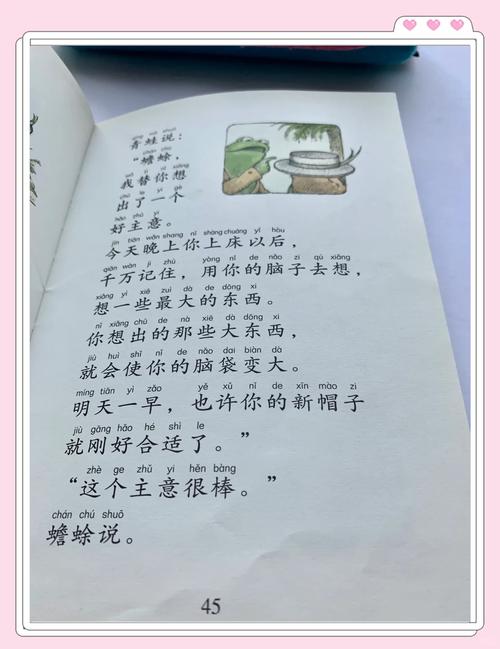 qīng wā shuō
青蛙说：
chán chú
“蟾蜍，
wǒ tì nǐ xiǎng
我替你想
chū le yí gè
出了一个
hǎo zhǔ yi
好主意。
jīn tiān wǎn shang nǐ shàng chuáng yǐ hòu
今天晚上你上床以后，
qiān wàn jì zhù yòng nǐ de nǎo zi qù xiǎng
千万记住，用你的脑子去想，
xiǎng yì xiē zuì dà de dōng xi
想一些最大的东西。
nǐ xiǎng chū de nà xiē dà dōng xi
你想出的那些大东西，
jiù huì shǐ nǐ de nǎo dai biàn dà
就会使你的脑袋变大。
míng tiān yì zǎo yě xǔ nǐ de xīn mào zi
明天一早，也许你的新帽子
jiù gāng hǎo hé shì le
就刚好合适了。”
zhè ge zhǔ yi hěn bàng
“这个主意很棒。”
chán chú shuō
蟾蜍说。
45